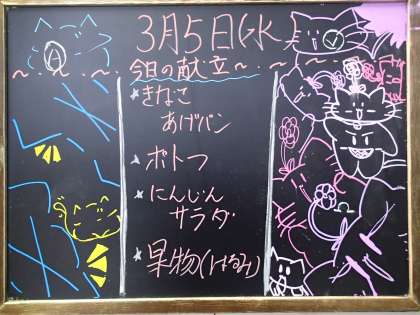 3月5日(水)
今日の献立
きなこ
あげパン
ポトフ
にんじん
サラダ
果物(はるみ)